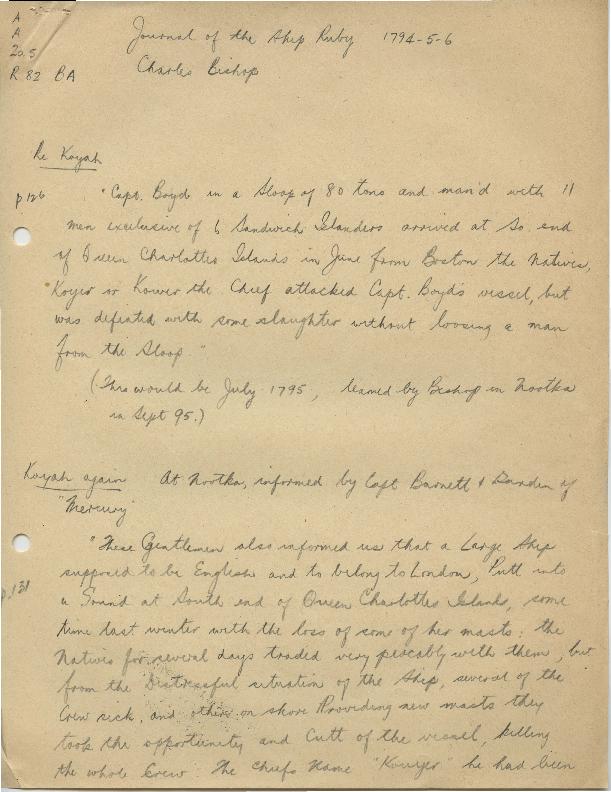 A
A
20.5
R 82 BA
Journal of the Ship Ruby 1794-5-6
Charles Bishop
Re Koyah
p 126
"Capt. Boyd in a Sloop of 80 tons and man'd with 11
men exclusive of 6 Sandwich Islanders arrived at So. end
of Queen Charlottes Islands in June from Boston the Natives,
Koyer or Kower the Chief attacked Capt. Boyd's vessel, but
was defeated with some slaughter without loosing a man
from the Sloop."
(This would be July 1795, learned by Bishop in Nootka
in Sept 95.)
Koyah again At Nootka, informed by Capt Barnett & of
"Mercury"
p.131
"These Gentlemen also informed us that a Large Ship
supposed to be English and to belong to London, Putt into
a Sound at South end of Queen Charlottes Islands, some
time last winter with the loss of some of her masts: the
Natives for several days traded very peacably with them, but
from the Distressful situation of the Ship, several of the
Crew sick, and others on shore Providing new masts they
took the opportunity and Cutt of the vessel, killing
the whole Crew. The Chiefs Name "Kouyer" he had been